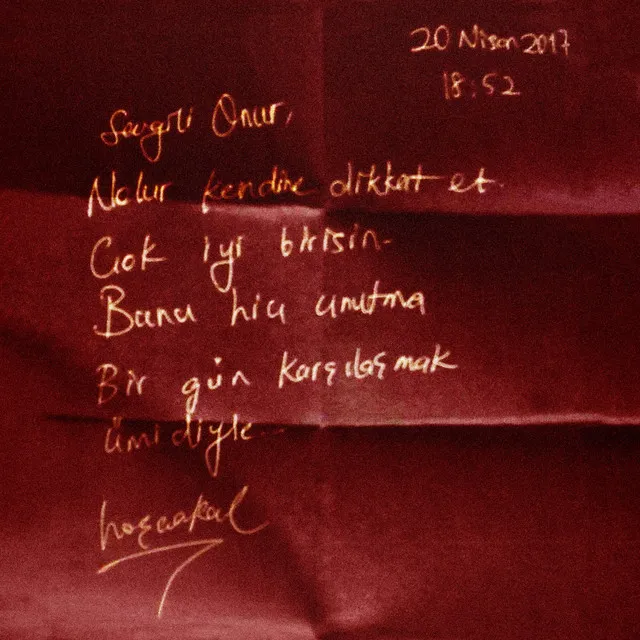 20 Nisan 2017
18:52
Sevgili Onur,
Nolur kendine dikkat et.
Çok iyi birisin.
Bunu hiç unutma
Bir gün karşılaşmak
ümidiyle...
hoşçakal